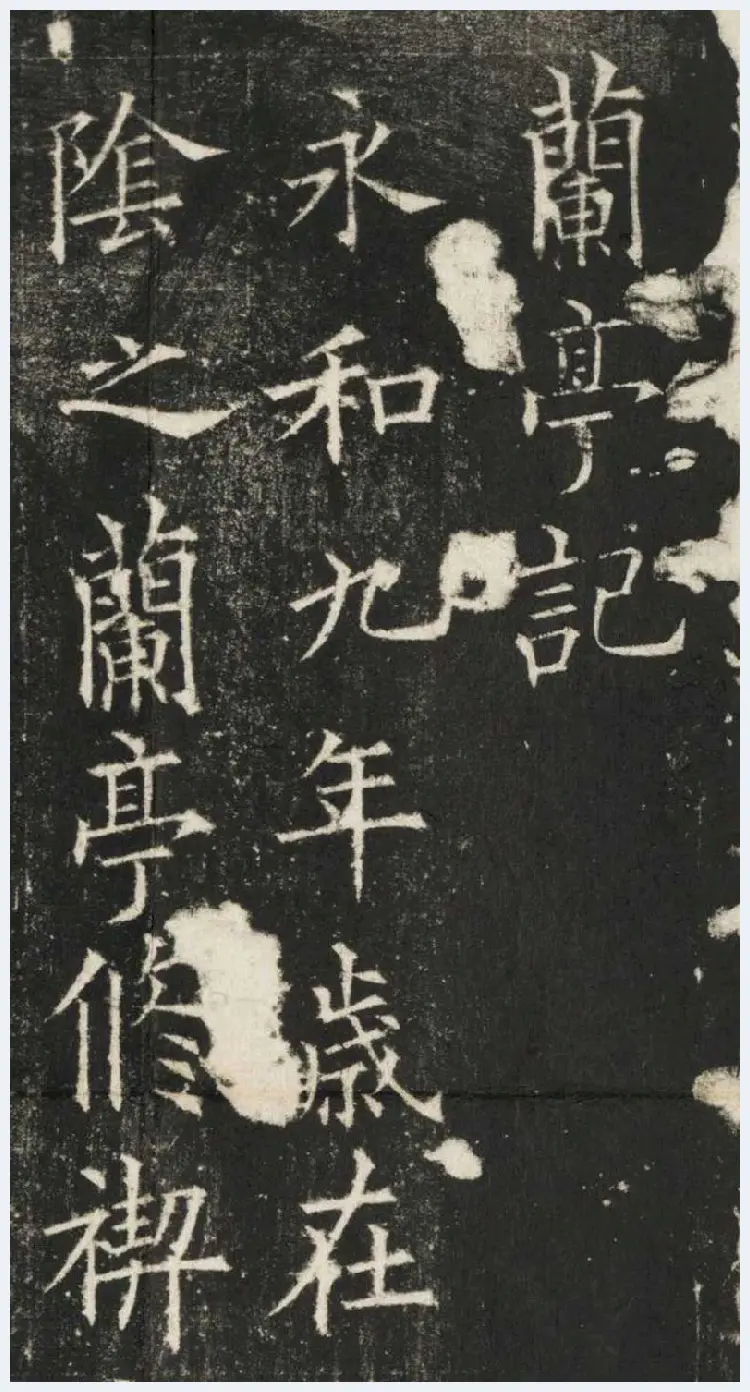 蘭亭記
永和九年歳在
陰之蘭亭修禊